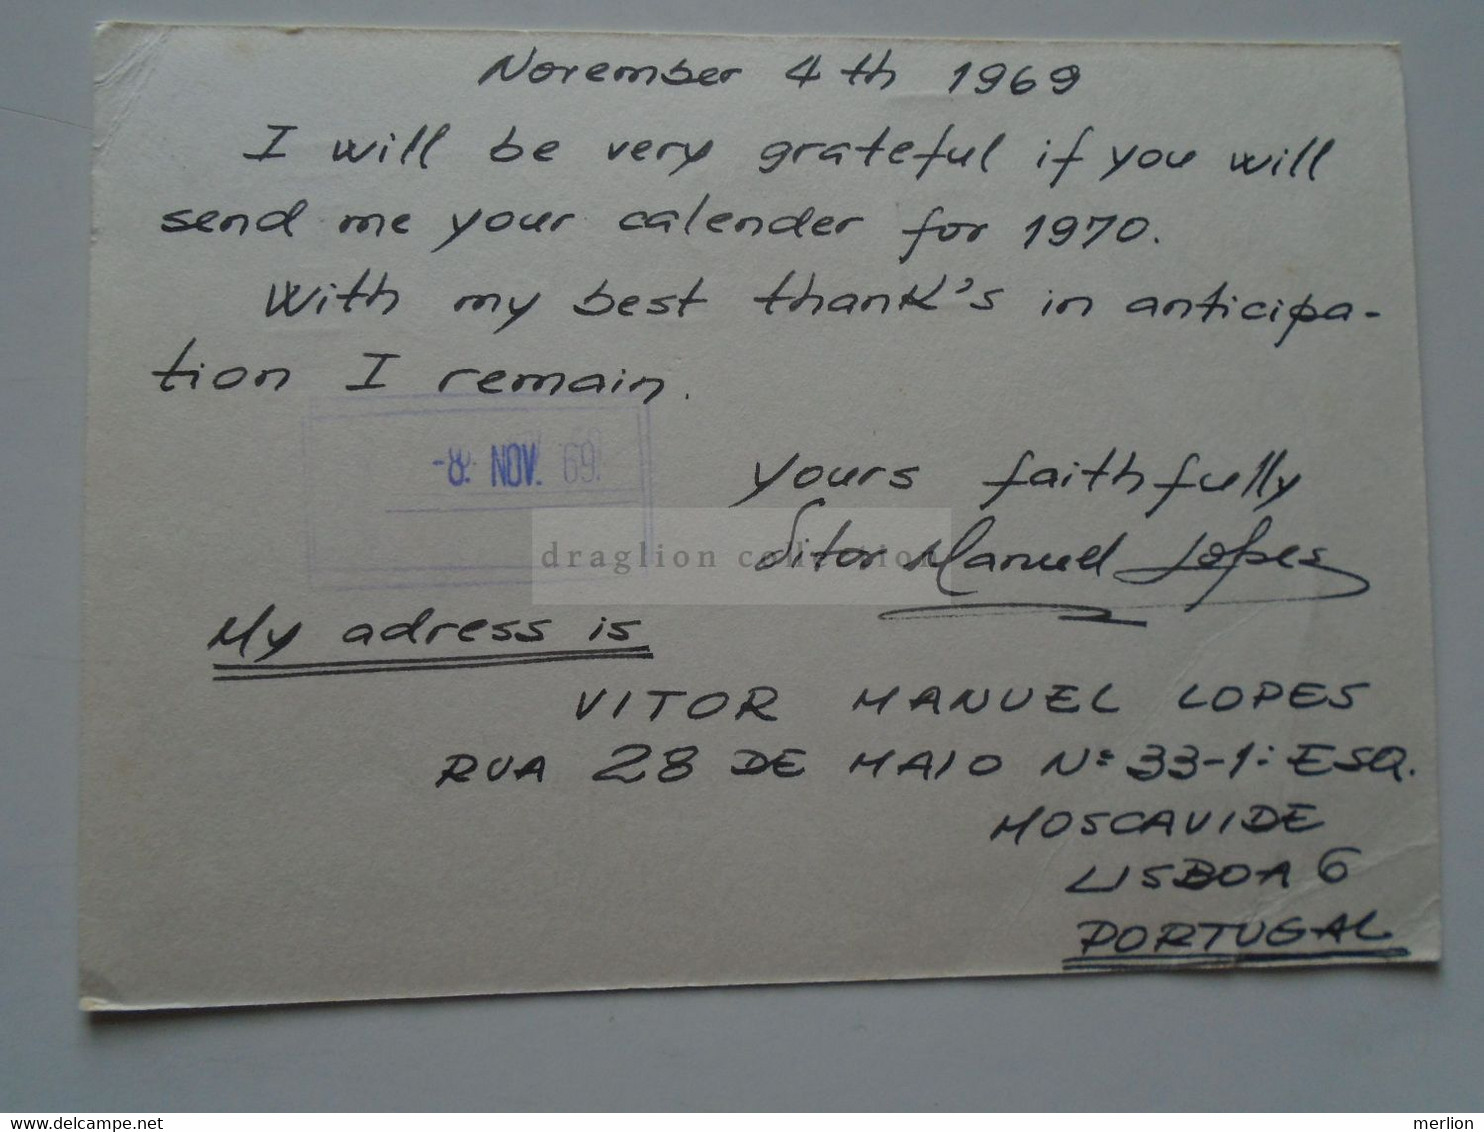 November 4th 1969
I will be very grateful if you will
send me your calender for 1970.
With my best thank's in anticipa-
tion I remain.
-8. NOV. 69.
Yours faithfully
Vitor Manuel Lopes
draglion collection
My adress is
VITOR MANUEL LOPES
RUA 28 DE MAIO Nº 33-1º ESQ.
MOSCAVIDE
LISBOA 6
PORTUGAL
www.delcampe.net
merlion